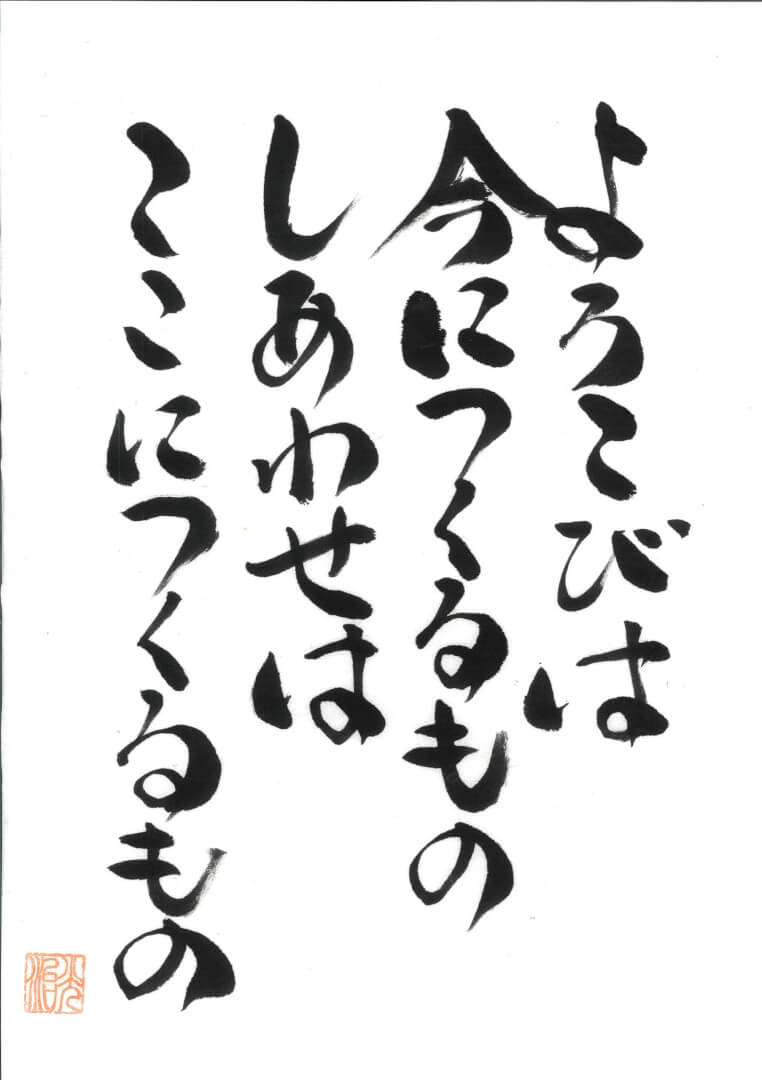 よろこびは
今につくるもの
しあわせは
ここにつくるもの